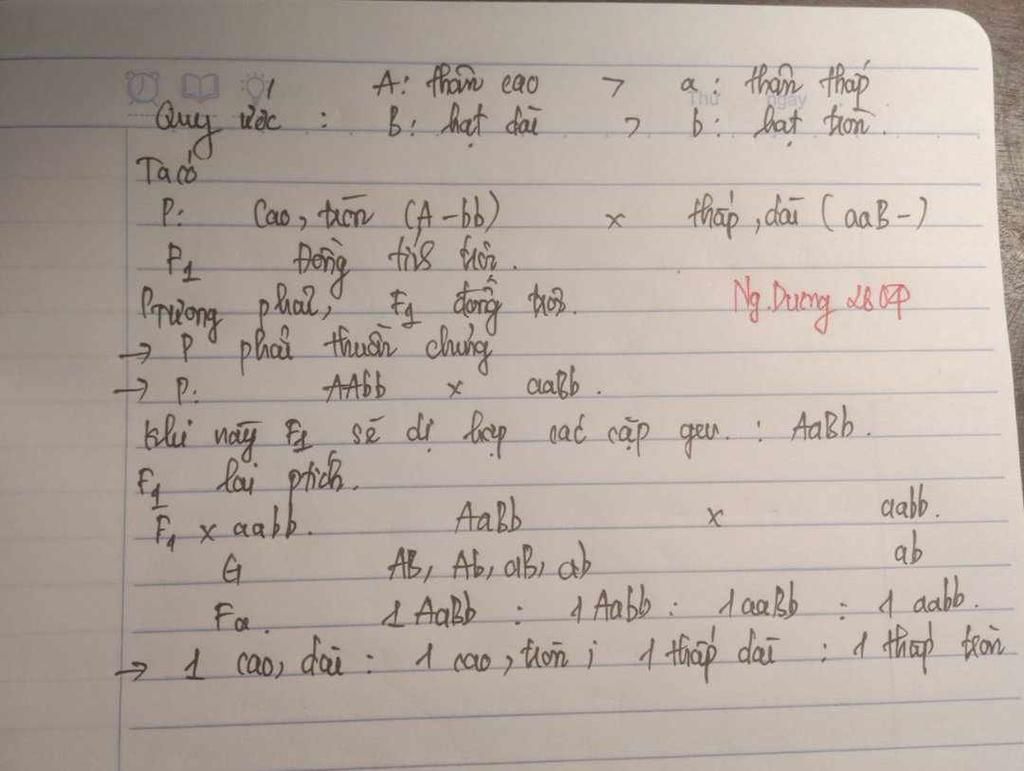 A: thân cao > a: thân thấp
Quy ước: B: hạt dài > b: hạt tròn.
Ta có
P: Cao, tròn (A-bb) x thấp, dài (aaB-)
F1 Đồng tính trội.
Trường phải, F1 đồng trội.
Ng. Dương 2807
→ P phải thuần chủng
→ P: AAbb x aaBb.
Khi này F1 sẽ dị hợp các cặp gen: AaBb.
F1 lai ptích.
F1 x aabb. AaBb x aabb.
G AB, Ab, aB, ab ab
Fa. 1 AaBb : 1 Aabb : 1 aaBb : 1 aabb.
→ 1 cao, dài : 1 cao, tròn ; 1 thấp dài : 1 thấp tròn